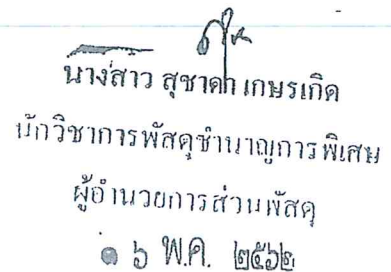 นางสาว สุชาดา เกษรเกิด
นักวิชาการพัสดุชำนาญการพิเศษ
ผู้อำนวยการส่วนพัสดุ
๑ ๖ พ.ค. ๒๕๖๒